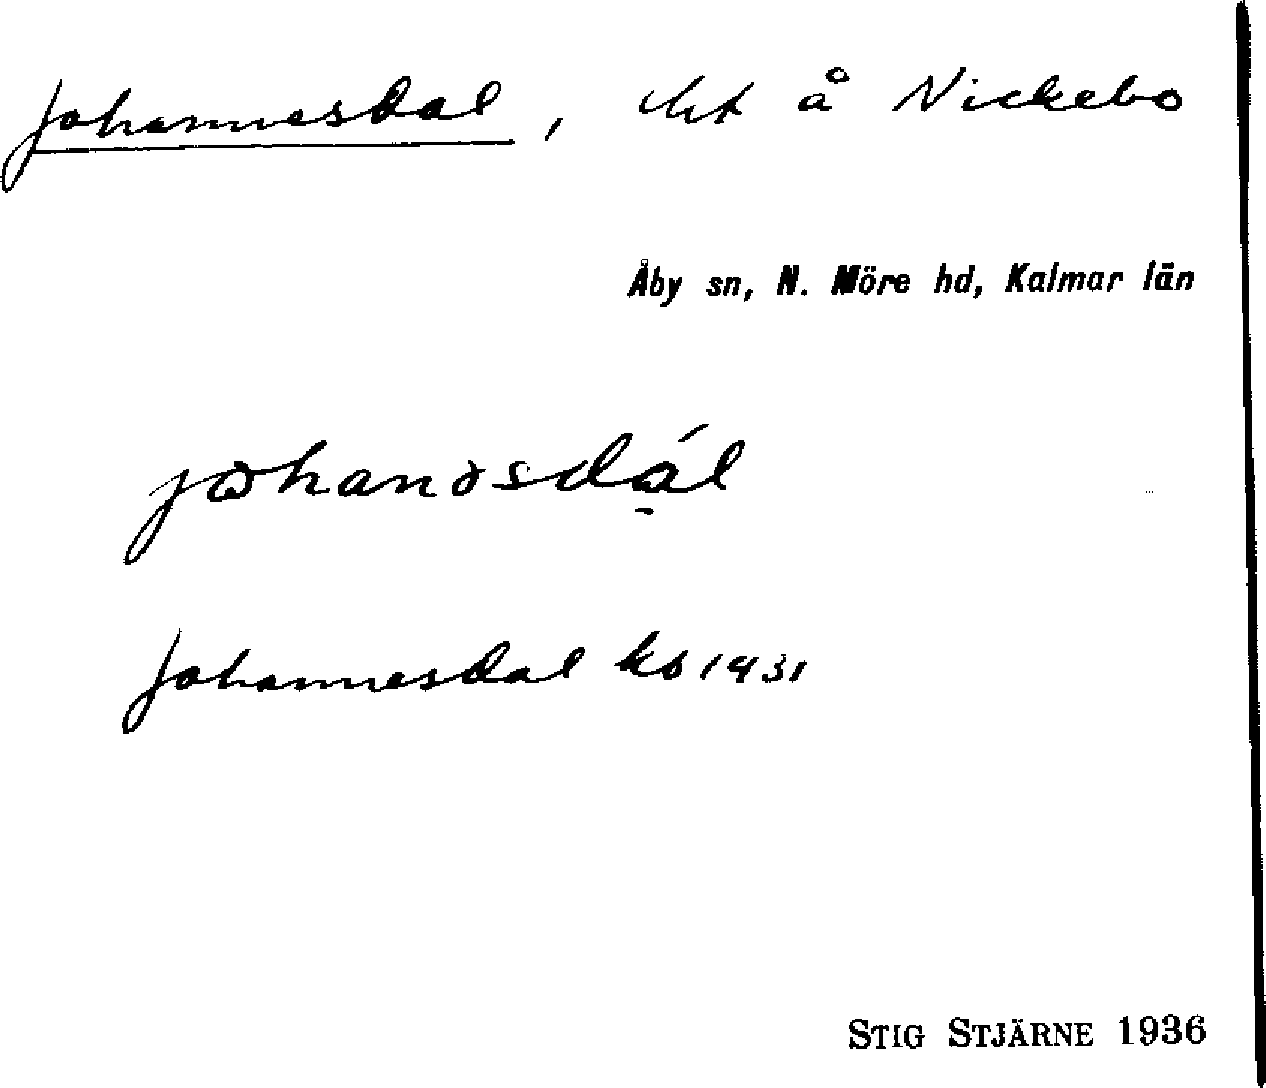 Johannesdal, lht å Nickebo
Åby sn, N. Möre hd, Kalmar län
Johannesdal kb 1931
STIG STJÄRNE 1936